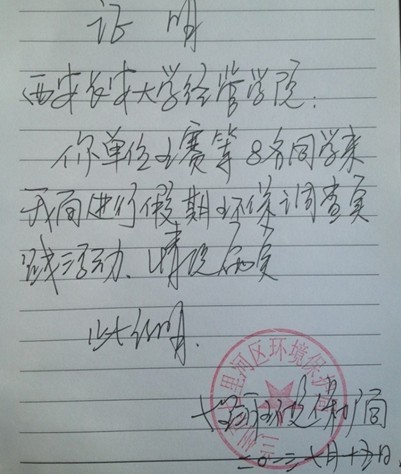 证明
西安长安大学经管学院:
你单位王赛等8名同学来
我局进行假期环保调查实
践活动、情况属实
此证明.
里河区环境保护
七里河环境保护局
二〇一一年七月十五日